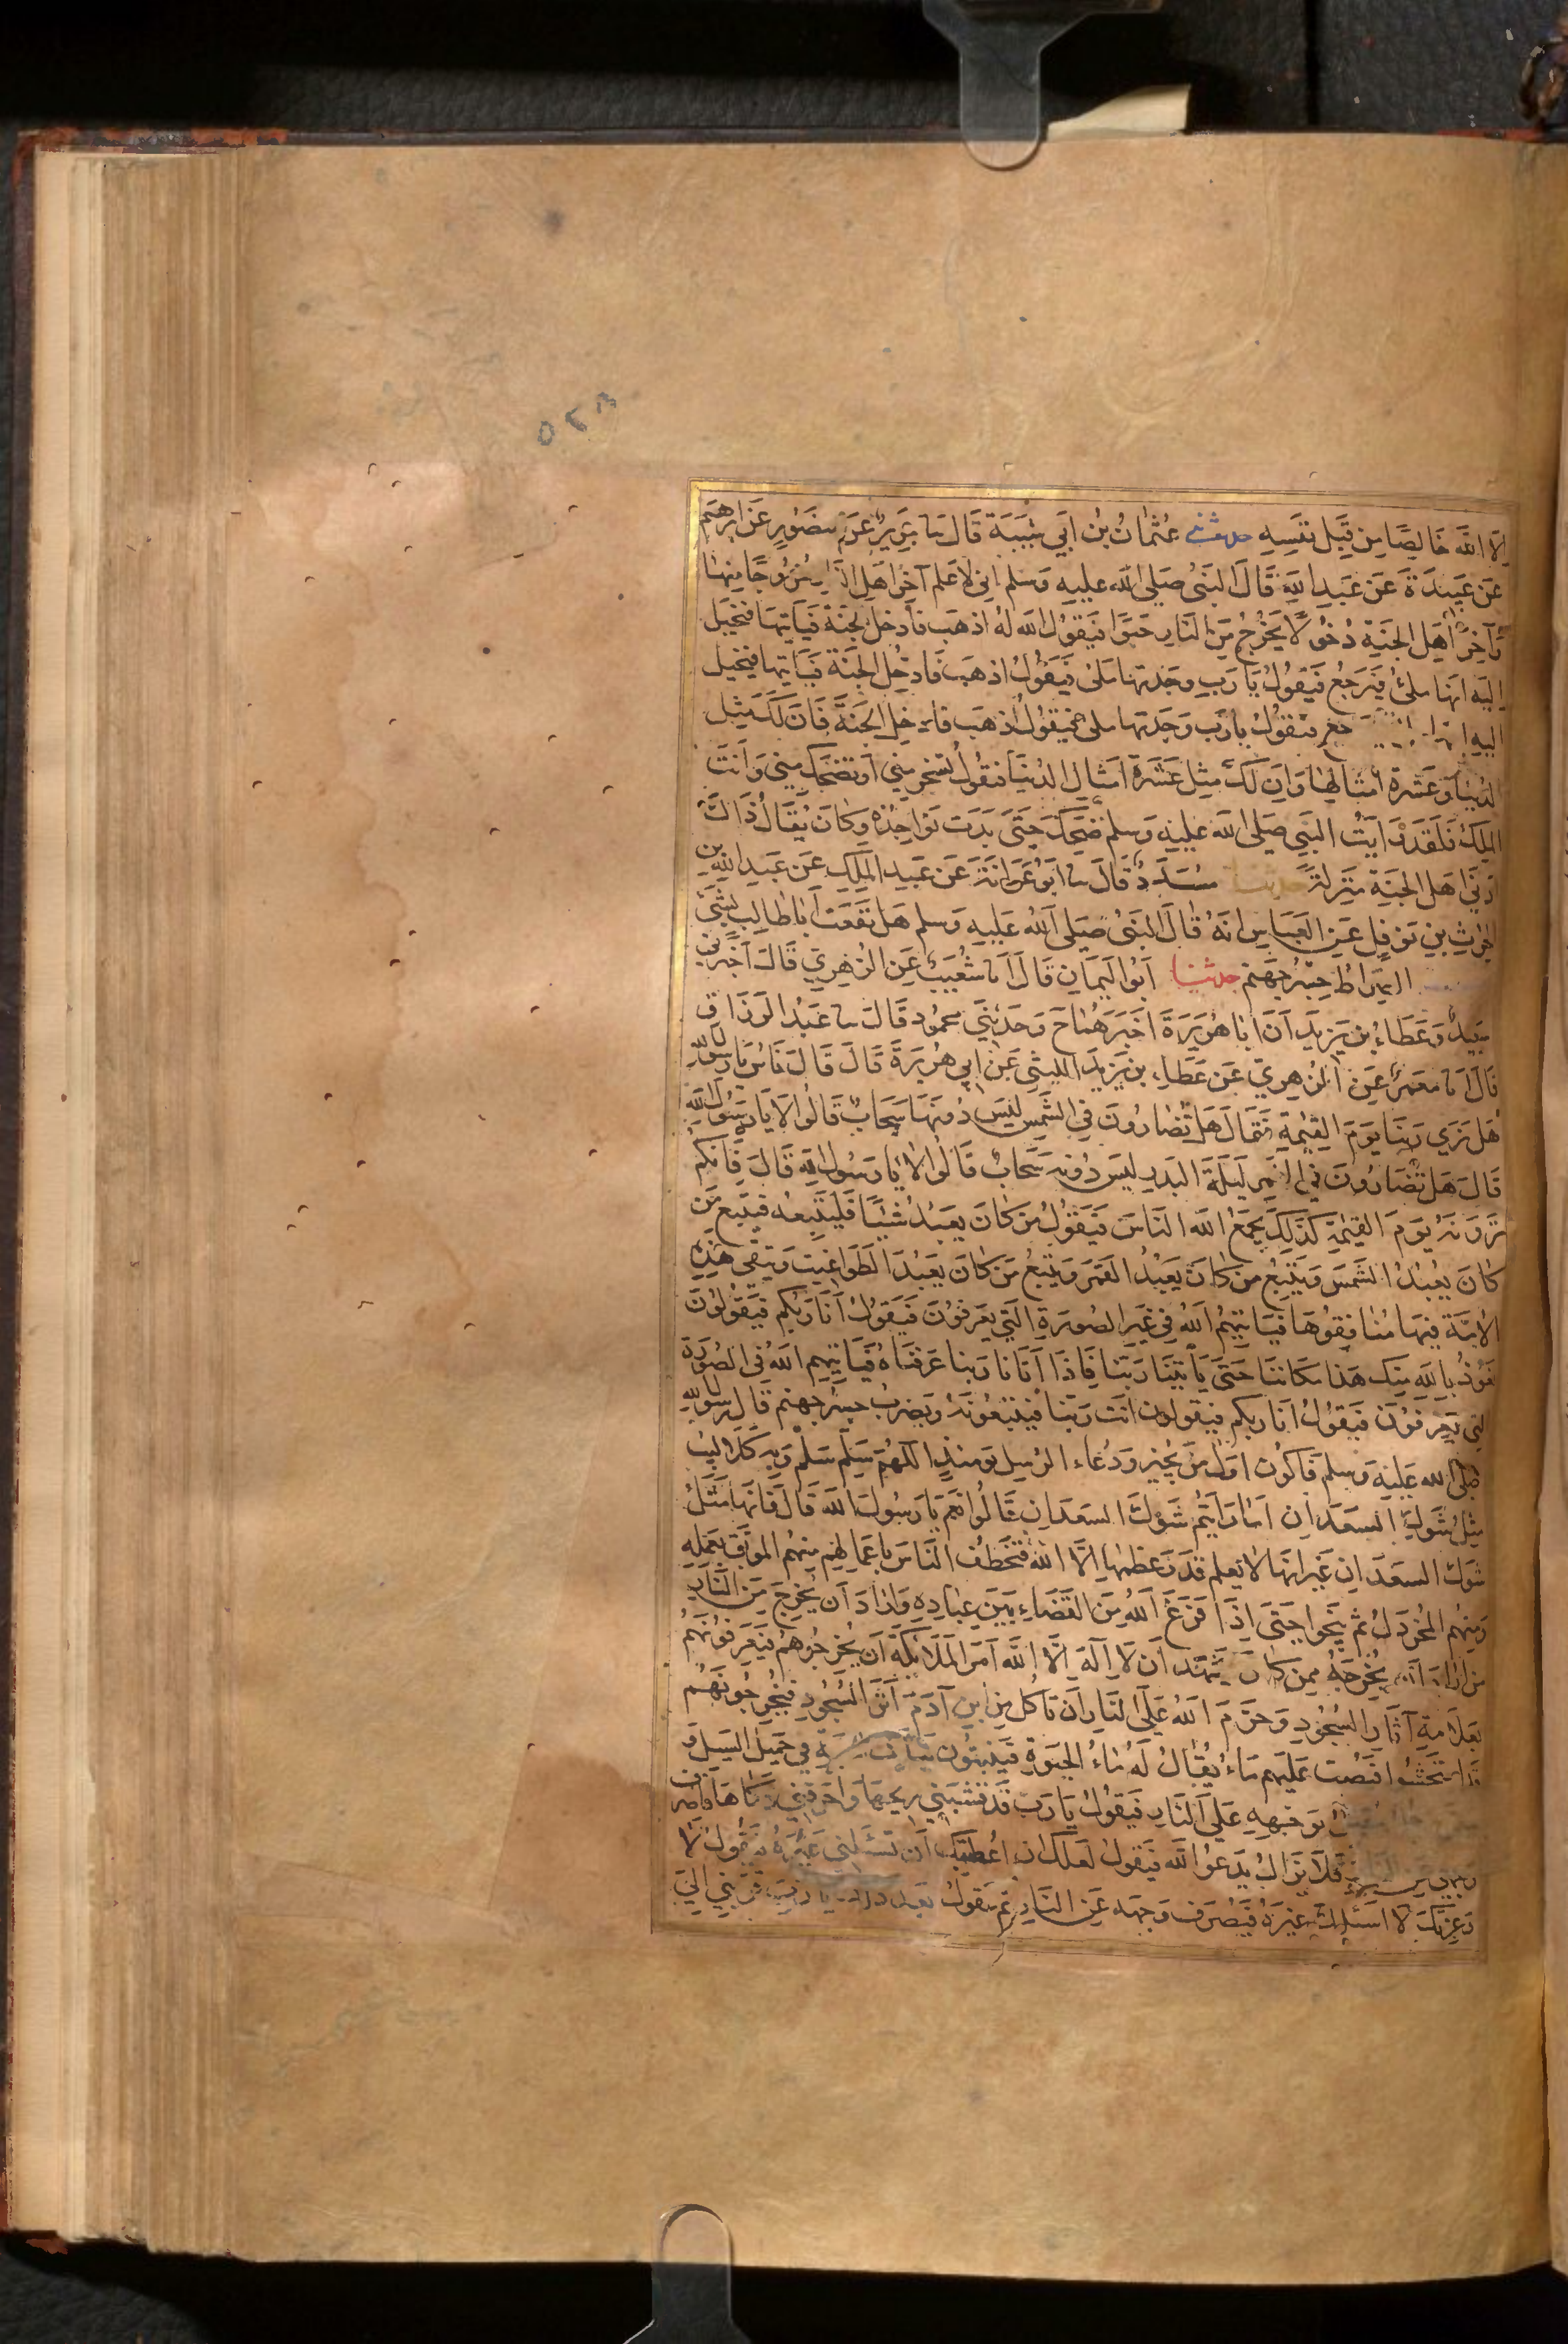 ٥٢٣
الا الله خَالِصًا مِن قِبَل نفسِهِ حدثني عُثمانُ بنُ ابي شَيبَةَ قَالَ نا جَرِيرٌ عَن منصُورٍ عَن ابرهيم
عَن عَبِيدَةَ عَن عَبدِ اللهِ قَالَ النبيُ صَلى الله عليهِ وَسلم اني لاعلم آخرَ اهلِ النار خُرُوجًا مِنهَا
وَآخِرَ أهل الجنةِ دُخُولًا يَخرُجُ مِنَ النَارِ حَبوًا فيَقولُ الله لهُ اذهَب فَادخل الجنةَ فيَاتيهَا فيخيل
اليه انها ملئ فيَرجعُ فيَقولُ يَا رَبِ وجَدتها ملئ فيَقولُ اذهَب فَادخُلِ الجنةَ فيَاتيها فيخيل
اليه انها فيقولُ يا رَب وَجَدتها ملئ فيقولُ اذهَب فادخلِ الجَنةَ فَان لَكَ مِثل
الدُنيَا وَعَشرَةَ أمثالِها وَان لَكَ مِثلَ عَشَرَة امثالِ الدُنيا فيَقولُ تسخر مِني أو تضحَك مِني وَانتَ
الملك فَلَقَد رَايتُ النبي صَلى الله عليهِ وَسلم ضحِكَ حتى بَدَت نَواجِذُه وَكانَ يُقَالُ ذَاكَ
ادني اهل الجنةِ مَنزِلةً حدثنا مُسَدَدٌ قَالَ نا ابو عَوانَةَ عَن عَبدِ الملِكِ عَن عَبدِ اللهِ بن
الحرثِ بنِ نَوفلٍ عَن العَباسِ انهُ قَالَ للنبيُ صَلى اللهُ عَليهِ وَسلم هَل نفَعتَ أبا طالِب بشئ
الصِراطُ جِسرُ جهَنم حدثنا ابو اليَمَانِ قَالَ انا شُعَيبٌ عَن الزهرِي قَالَ اخبرني
سَعِيدٌ وَعَطاءُ بن يَزِيدَ أنَ ابا هُرَيرَةَ اخبَرهُما ح وَحَدثني محمُود قَالَ نا عَبدُ الرزَاق
قَالَ انا معمَرٌ عَن الزهرِي عَن عَطاءِ بن يَزيدَ الليثي عَن ابي هُريرَةَ قَالَ قَالَ نَاسٌ يَا رسول الله
هَل نَرَي رَبنا يَومَ القيمةِ فَقالَ هَل تُضارُونَ في الشمس ليسَ دُونهَا سَحابٌ قَالوا لا يَا رَسُول اللهِ
قَالَ هَل تُضَارُونَ في القمرِ لَيلَةَ البَدرِ ليسَ دُونَه سَحَابٌ قَالوا لا يَا رَسُولَ اللهِ قَالَ فَانكم
تَرَونَهُ يَومَ القيمَة كذَلِكَ يجمَعُ الله الناسَ فيَقُولُ مَن كانَ يعبُدُ شيئًا فليَتبِعه فيتبع مَن
كانَ يعبُدُ الشمسَ وَيَتبعُ مَن كانَ يَعبُدُ القمَرَ وَيتبعُ مَن كانَ يعبُدُ الطَواغيتَ وَتبقي هَذِهِ
الامَّة فيهَا مُنافقُوهَا فيَاتيهمُ اللهُ في غَيرِ الصُورَةِ التي يعرفوُنَ فيَقولُ أنَا رَبُكم فيَقُولُونَ
نَعُوذُ بالله مِنك هَذا مكانُنا حَتى يَأتِيَنَا رَبنا فَاذَا اتَانا رَبنا عَرفنَاهُ فيَاتيهم اللهُ في الصُورَة
التي يَعرفوُنَ فيَقوُلُ انا ربكم فيَقولون انت رَبنا فيَتبعُونَهُ وَيُضرَبُ جِسرُ جهنم قَالَ رسول الله
صَلي الله عَليهِ وَسلم فَاكُون اوَل مَن يُجيز وَدُعاء الرسل يَومئذٍ اللهُمَ سَلم سَلم وَبه كَلاليب
مِثلُ شَوكِ السعدَان امَا رَايتُم شَوكَ السعدَان قَالوُا نعَم يَا رَسُولَ الله قَالَ فَانهَا مثلُ
شَوك السعدَان غَيرَ انهَا لا يعلم قَدرَ عظمهَا الا اللهُ فتَخطفُ الناسَ باعمَالهم مِنهم الموبَق بعَمَلِهِ
وَمِنهُم المخَردَلُ ثم يَنجوا حتى اِذَا فرَغَ اللهُ مِنَ القضَاءِ بَينَ عِبادِه وَارَادَ أن يُخرِجَ مِنَ النَّارِ
مَن ارَادَ أن يُخرِجَهُ ممن كانَ يَشهَد ان لا اله الا الله أمَرَ الملَائكة أن يُخرجُوهُم فيَعرفونهم
بعَلامَةِ آثَارِ السُجُودِ وَحرَّمَ اللهُ عَلَى النَارِ ان تأكل مِن ابن آدَمَ اثرَ السُجُودِ فيُخرجُونَهُم
قَد امتُحشُوا فيُصَب عَليهِم مَاءٌ يُقالُ لَهُ مَاءُ الحيَوةِ فيَنبتُون نباتَ الحبَة في حميل السَيل وَ
بوَجهِهِ عَلي النَارِ فيَقولُ يَا رَب قَد قشبَني رِيحهَا وَاحرَقني ذكَاهَا فَاصرف
فلَا يَزَالُ يَدعوُ الله فيَقول لعَلك ان اعطيتك أن تَسئَلني غَيرَهُ فيَقُولُ لا
وَعِزتِكَ لا اسئلك غَيرَهُ فيَصرف وَجهَه عَن النَارِ ثم يقُولُ بعدَ ذلك يا ربِ قربني الي